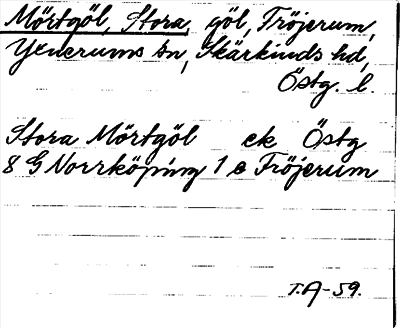 Mörtgöl, Stora, göl, Fröjerum,
Yxnerums sn, Skärkinds hd,
Östg. l.
Stora Mörtgöl ek Östg
8 G Norrköping 1 e Fröjerum
T.A-59.